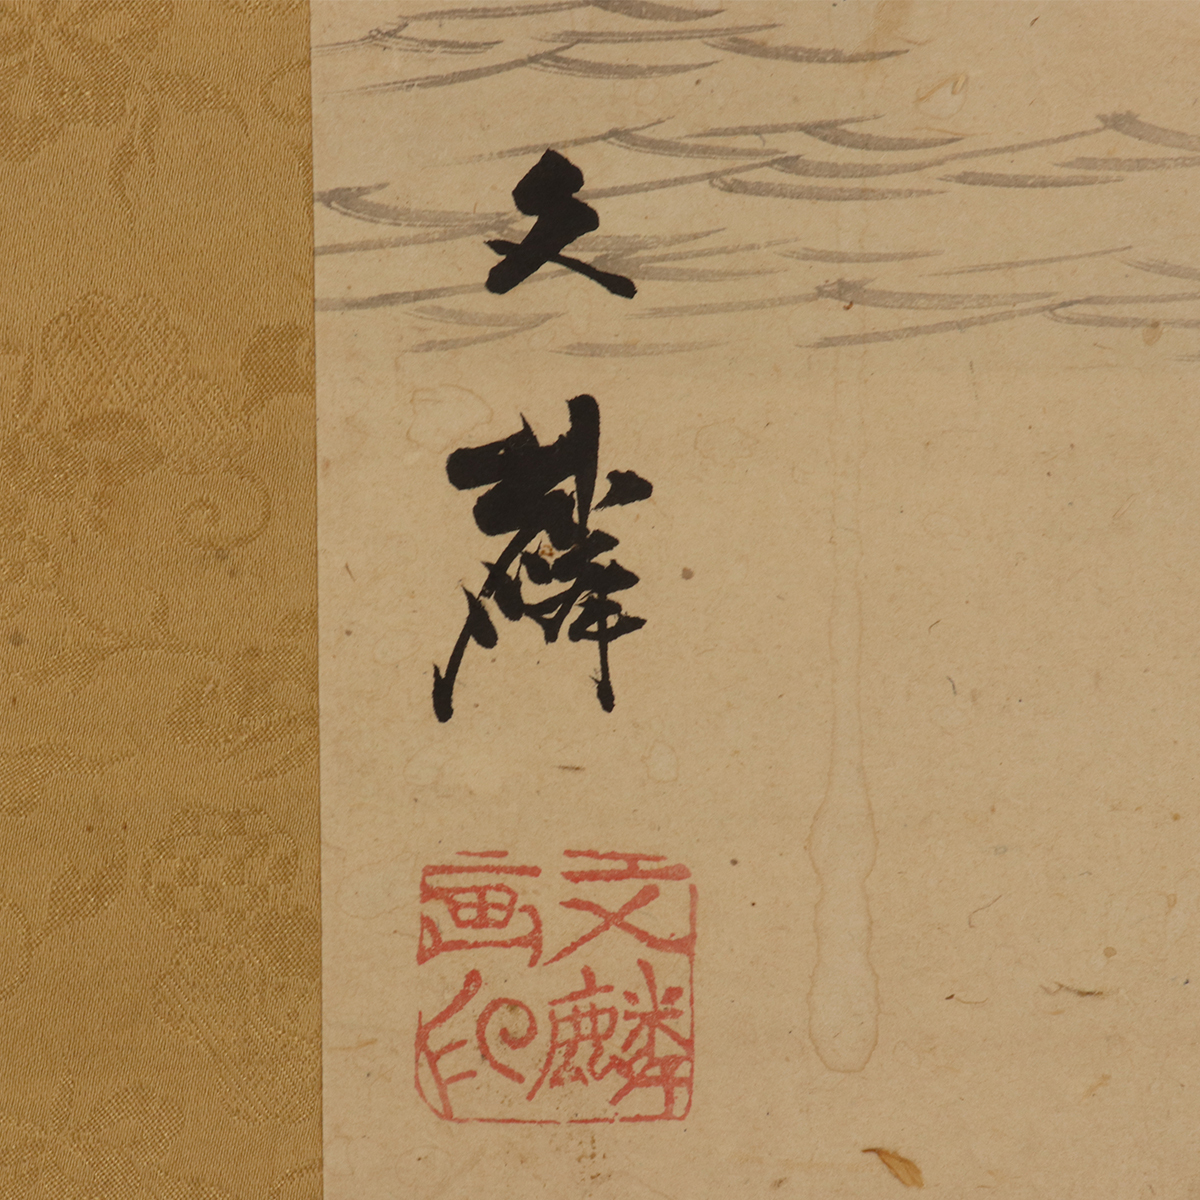 文麟
文麟
画印